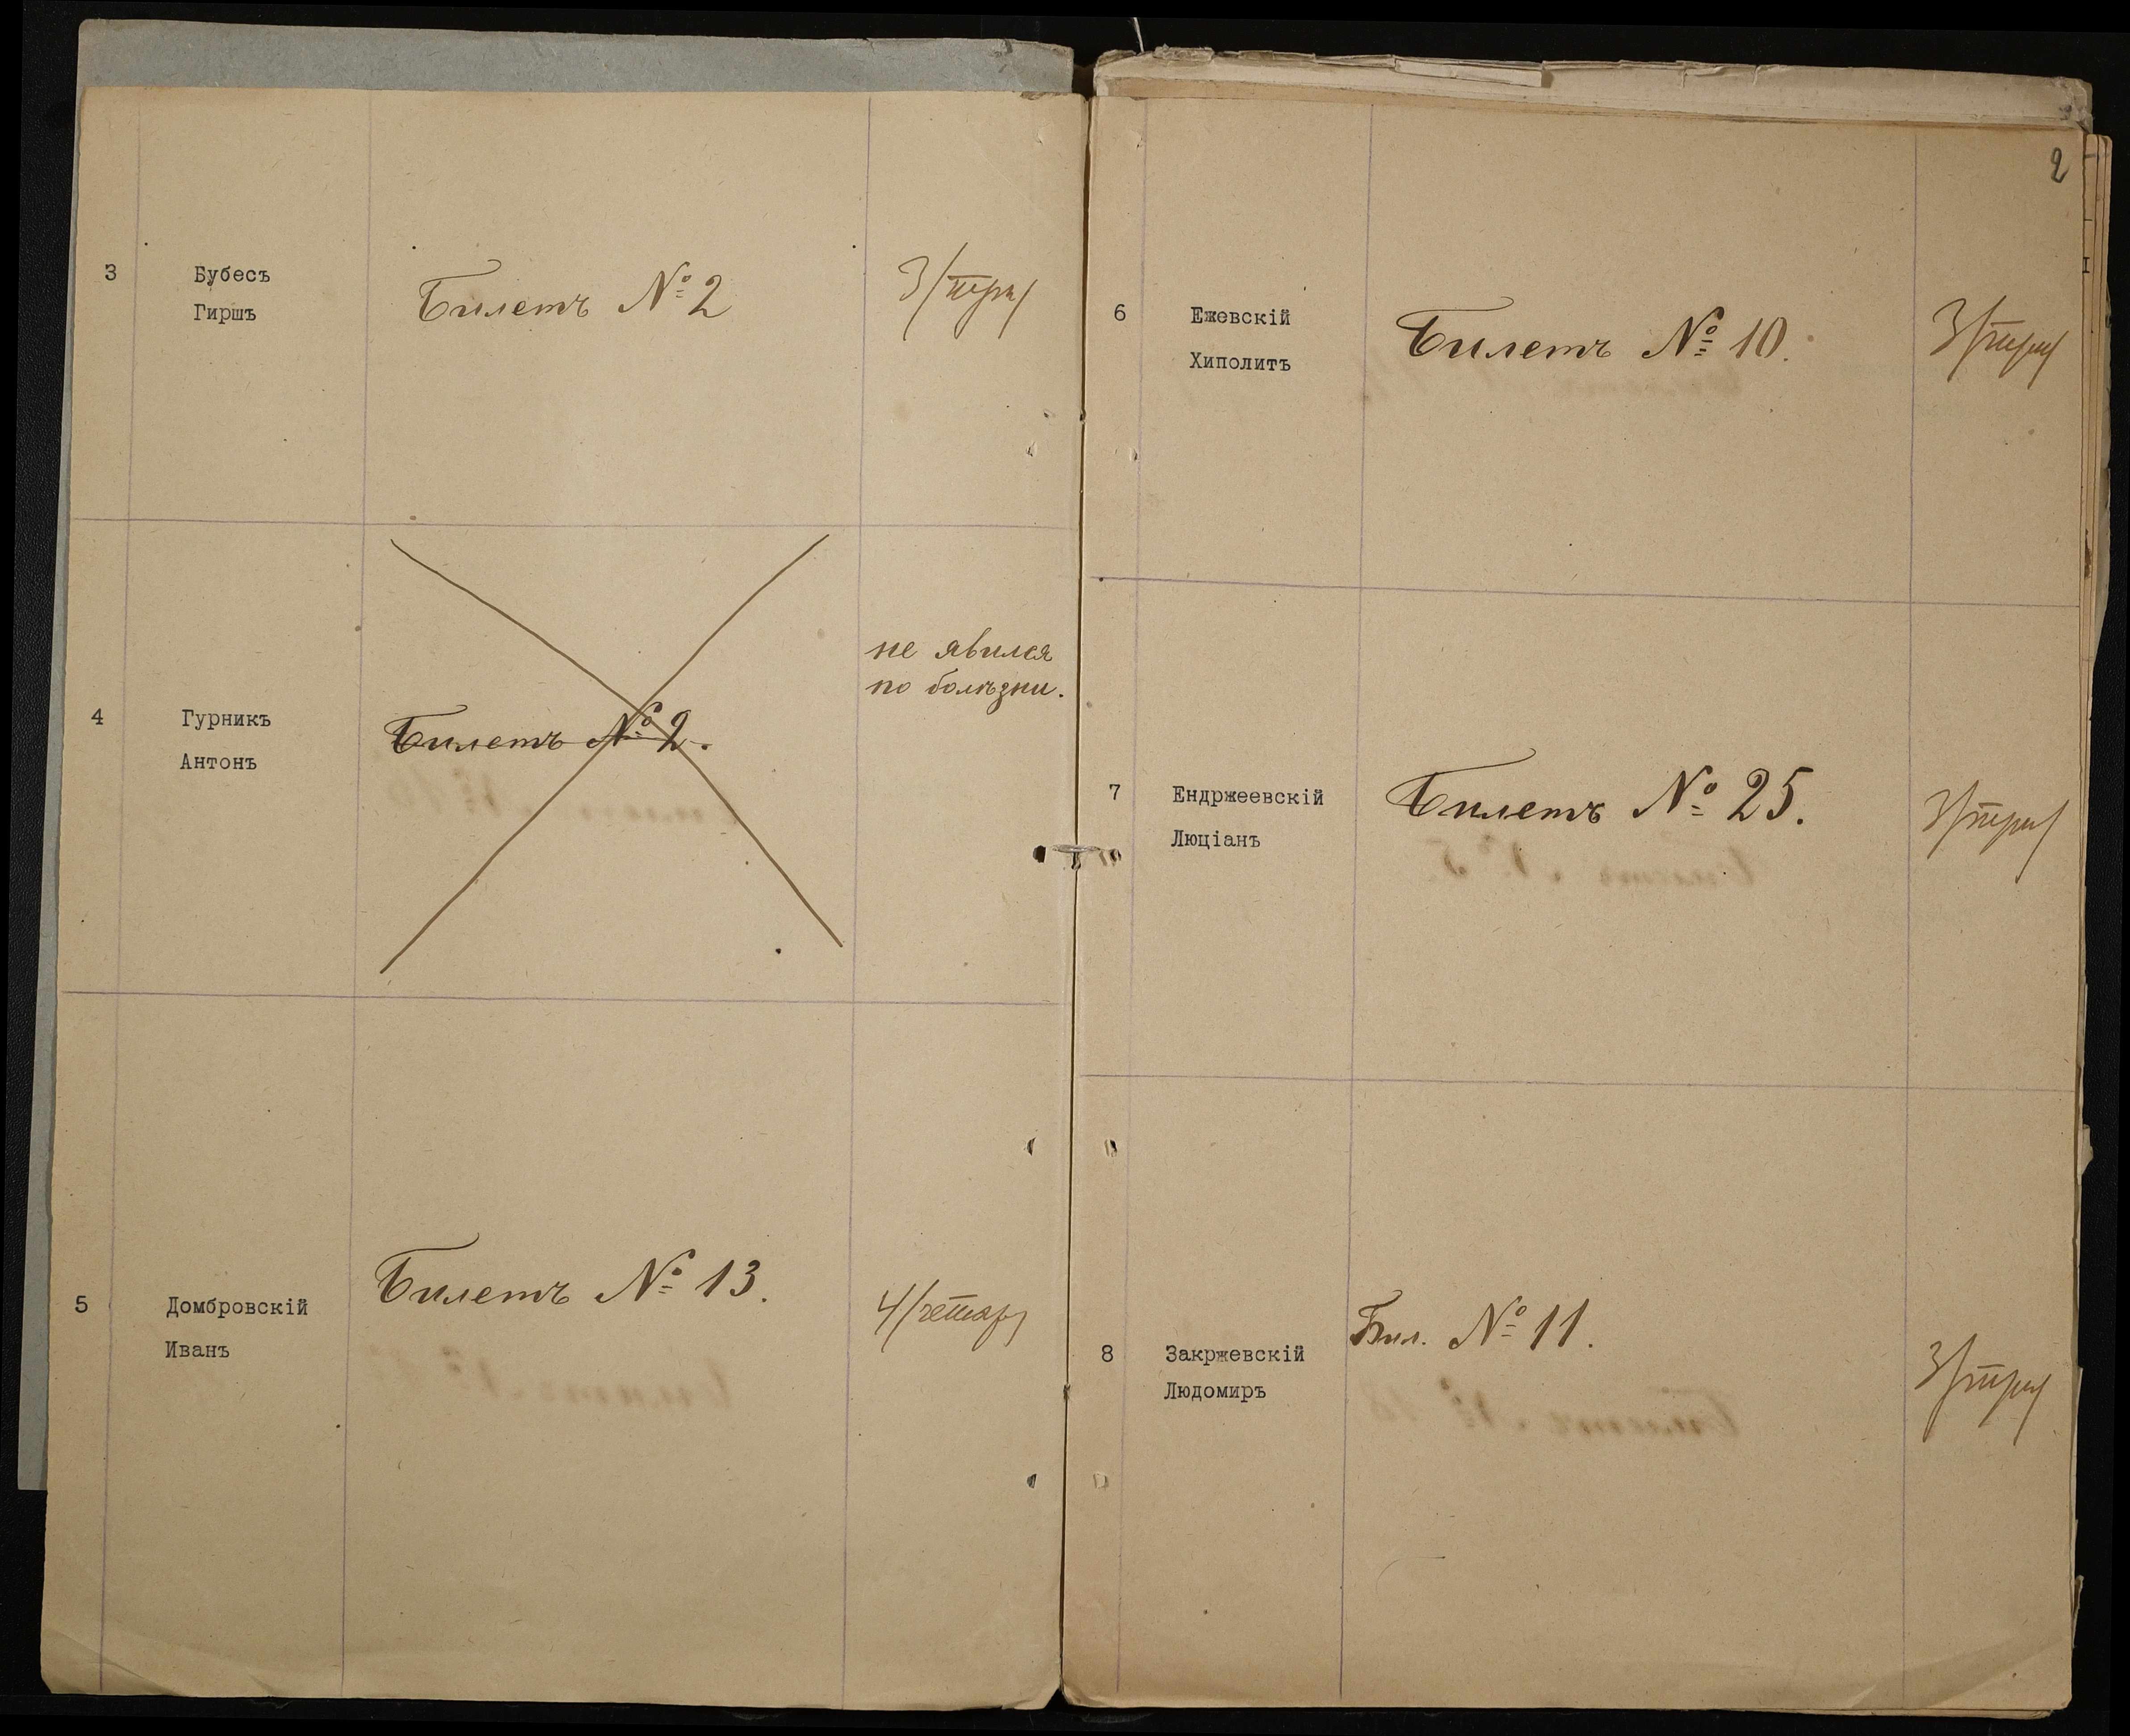 3
Бубесъ
Гиршъ
Билетъ № 2
3/три/
4
Гурникъ
Антонъ
Билетъ № 2.
не явился
по болѣзни.
5
Домбровскій
Иванъ
Билетъ № 13.
4/четыр/
2
6
Ежевскій
Хиполитъ
Билетъ № 10.
3/три/
7
Ендржеевскій
Люціанъ
Билетъ № 25.
3/три/
8
Закржевскій
Людомиръ
Бил. № 11.
3/три/